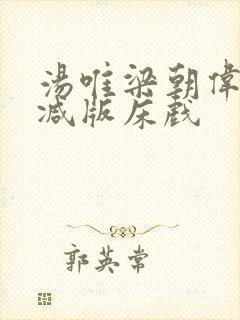 湯唯梁朝偉
減版床戲
郭英常